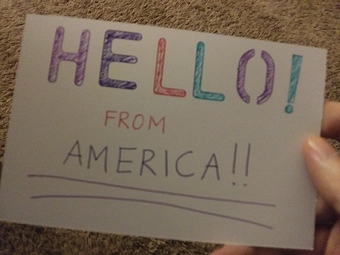 HELLO!
FROM
AMERICA!!